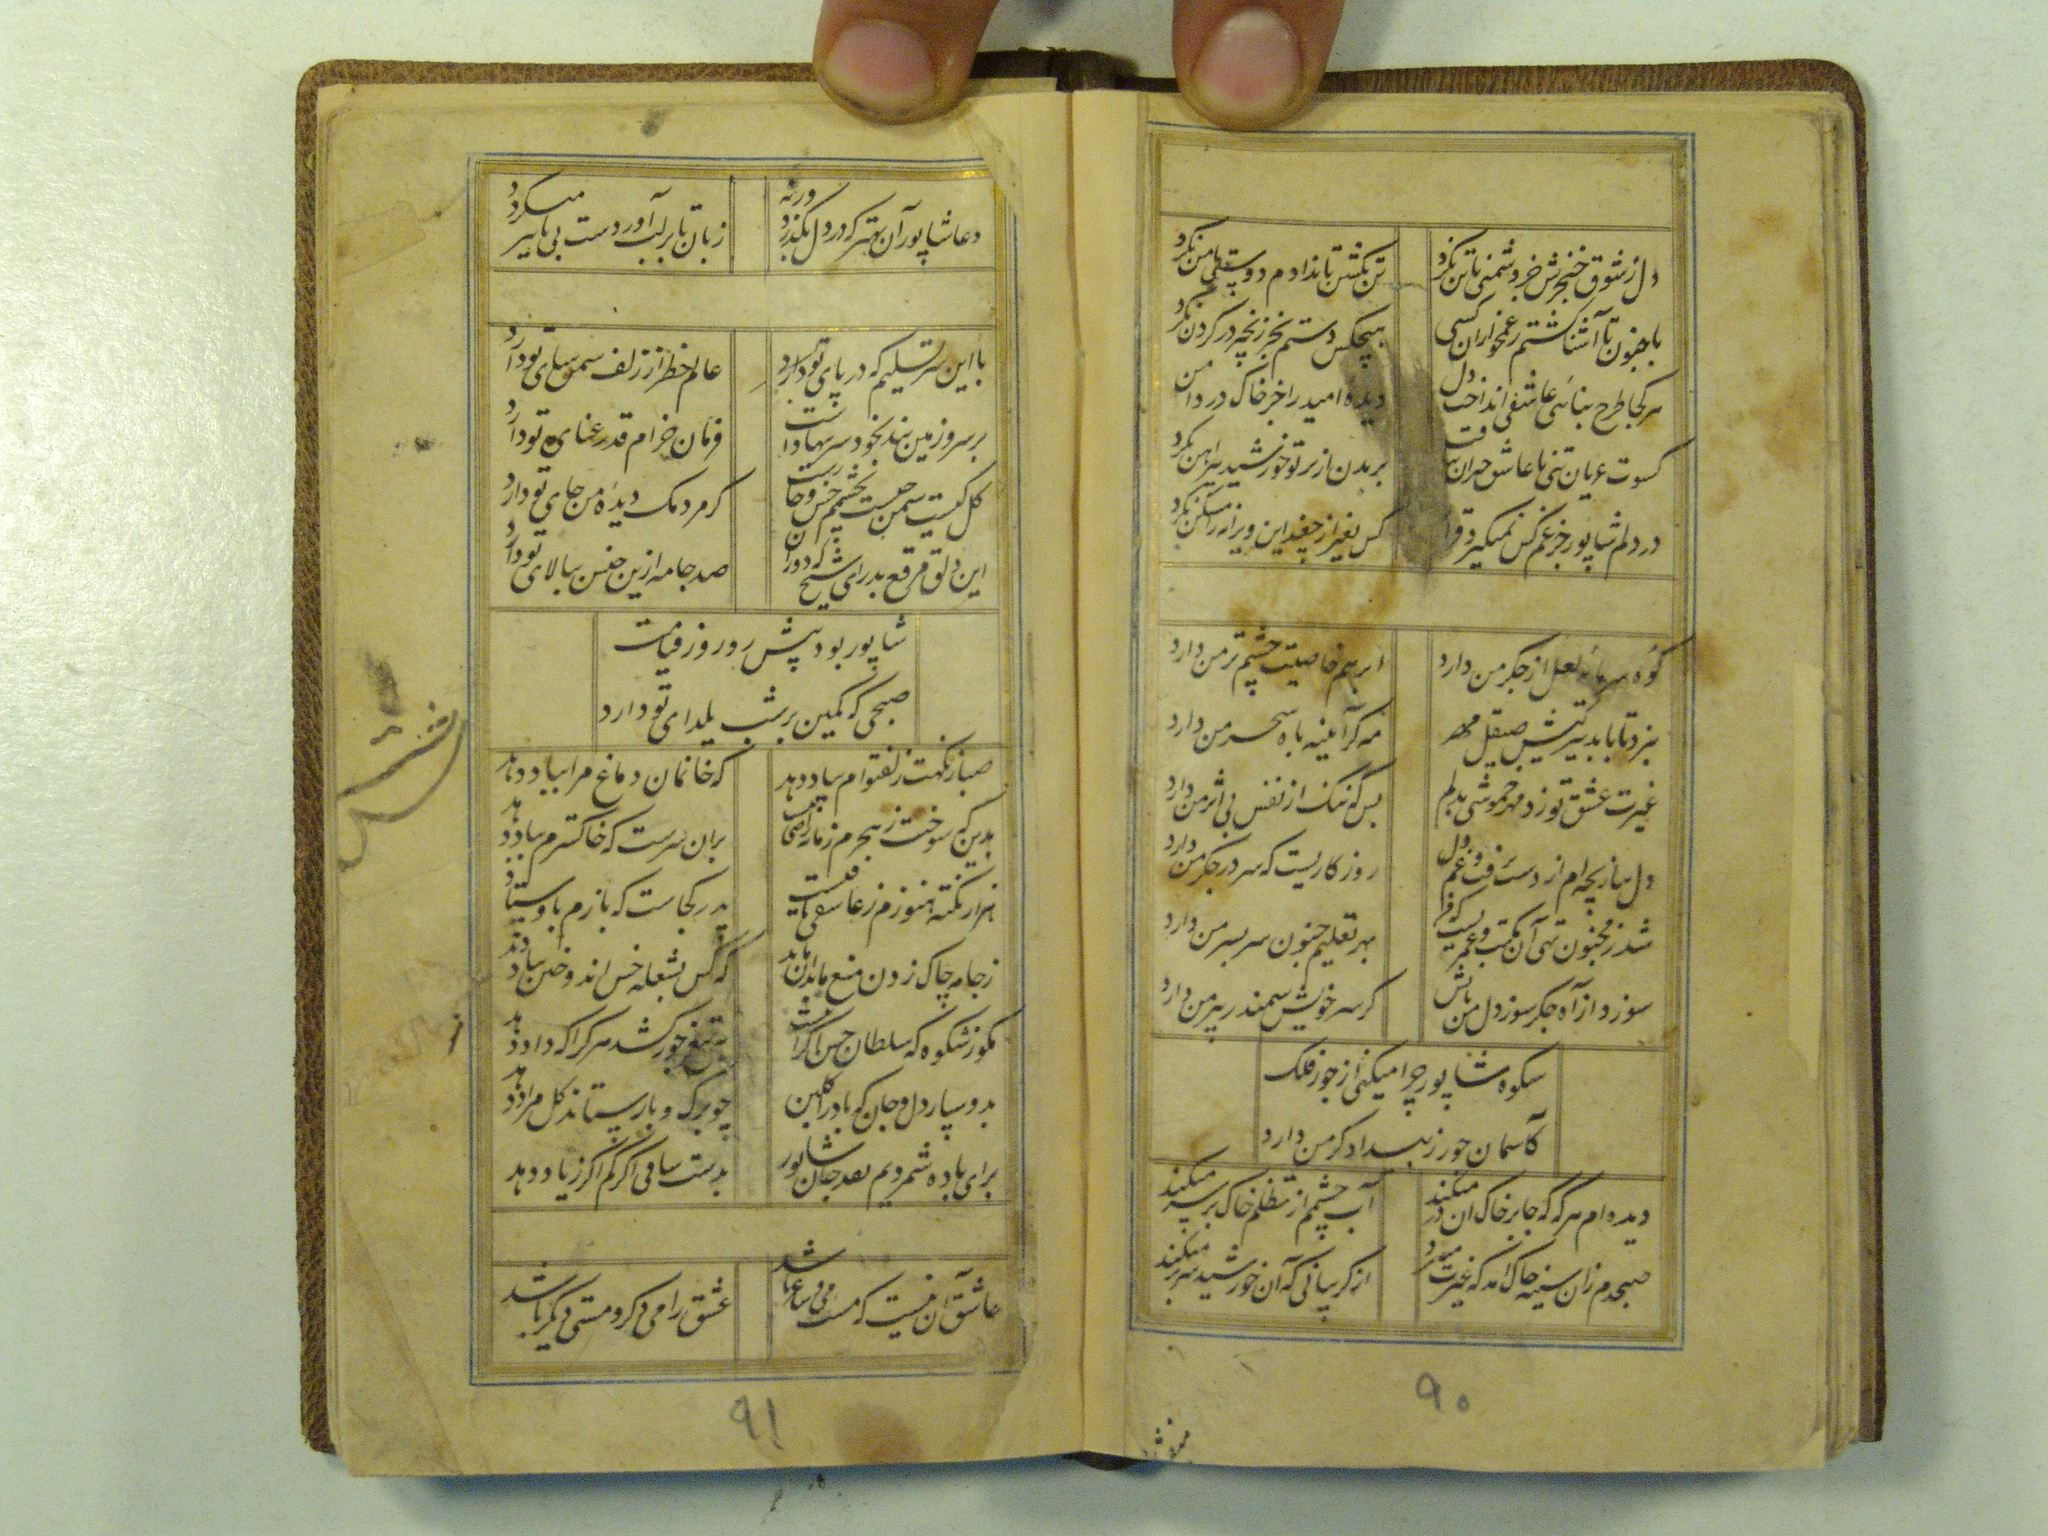 دل ز شوق خنجرش خبر دشمنی با تن نکرد
تن بکشتن تا ندادم دوستی با من نکرد
با جنون تا آشنا گشتم ز غمخواران کسی
هیچکس دستم بجز زنجیر در گردن نکرد
هر کجا طرح بنائی عاشقی انداخت دل
دیده امید را جز خاک در دامن
کسوت عریان تنی با عاشق حیران
بر بدن از پرتو خورشید پیراهن نکرد
در دلم شاپور جز غم کس نمیگیرد قرار
کس بغیر از جغد این ویرانه را مسکن نکرد
کوه سرمایه لعل از جگر من دارد
ابر هم خاصیت چشم تر من دارد
نبرد تاب بد تیرگیش صیقل مهر
مه گر آیینه به آه سحر من دارد
غیرت عشق تو زد مهر خموشی بدلم
بس که ننگ از نفس بی اثر من دارد
دل ببازیچه ام از دست رفت و غم دل
روزگاریست که سر در جگر من دارد
شد ز مجنون تهی آن مکتب و عمریست که
بهر تعلیم جنون سر بسر من دارد
سوزد از آه جگر سوز دل من بالش
گر سر خویش سمندر بپر من دارد
شکوه شاپور چرا میکنی از جور فلک
کاسمان جور ز بیدادگر من دارد
دیده ام هر گه که جا بر خاک آن در میکند
آب چشمم از تظلم خاک بر سر میکند
صبحدم زان سینه چاک آمد که غیرت میبرد
از گریبانی که آن خورشید سر بر میکند
۹۰
دعا شاپور آن بهتر که در دل بگذرد ورنه
زبان تا بر لب آورد دست بی تاثیر میگردد
با این سر تسلیم که در پای تو دارد
عالم خطر از زلف سمن سای تو دارد
بر سرو زمین بند بخود سر بهواداست
فرمان خرام قد رعنای تو دارد
گل کیست سمن چیست بچشمم خس و خارست
گر مردمک دیده من جای تو دارد
این دلق مرقع بدر ای شیخ که دوران
صد جامه ازین جنس ببالای تو دارد
شاپور بود پیش رو روز قیامت
صبحی که کمین بر شب یلدای تو دارد
صبا ز نکهت زلف توام بیاد دهد
که خانمان دماغ مرا بباد دهد
بدین که سوخت ز هجرم زمانه راضی نیست
بران سرست که خاکسترم بباد دهد
هزار نکته هنوزم ز عاشقی باقیست
پدر کجاست که بازم باوستاد دهد
ز جامه چاک زدن منع ما بدان ماند
که کس بشعله خس اندوختن بیاد دهد
مگو ز شکوه که سلطان حسن ناگزر است
به تیغ جور کشد هر کرا که داد دهد
بدو سپار دل و جان که باد را گلبن
چو برگ و بار ستاند گل مراد دهد
برای باده شمردیم نقد جان شاپور
بدست ساقی اگر کم اگر زیاد دهد
عاشق آن نیست که مست می و ساغر باشد
عشق را می دگر و مستی دیگر باشد
۹۱